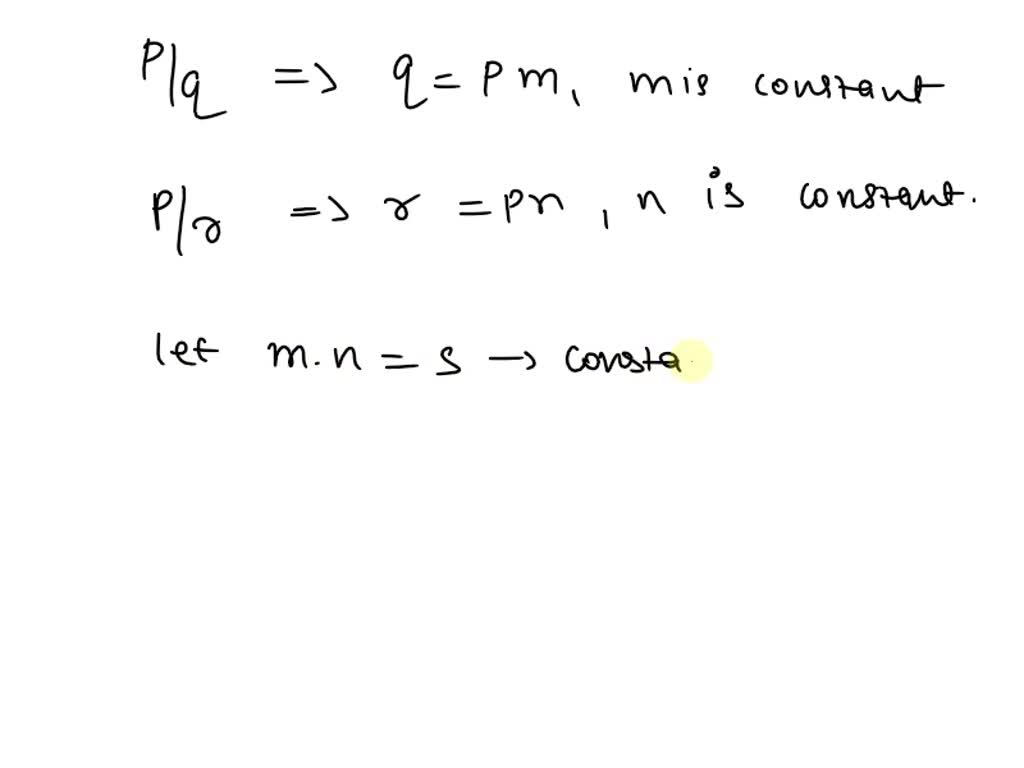 P/q => q = pm, m is constant
P/r => r = pn, n is constant.
let m.n = s → consta